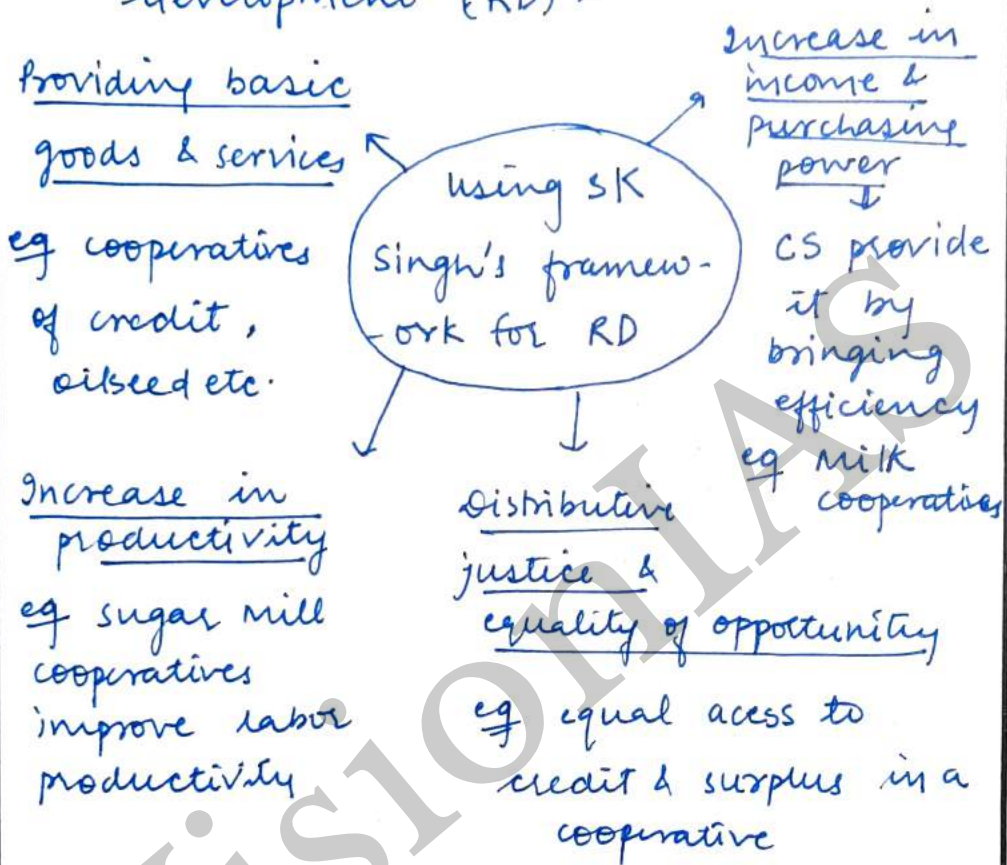 development (RD) -
Providing basic
goods & services
eg cooperatives
of credit,
oilseed etc.
using SK
Singh's framew-
-ork for RD
Increase in
income &
purchasing
power
CS provide
it by
bringing
efficiency
eg Milk
cooperatives
Increase in
productivity
eg sugar mill
cooperatives
improve labor
productivity
Distributive
justice &
equality of opportunity
eg equal acess to
credit & surplus in a
cooperative
VisionIAS